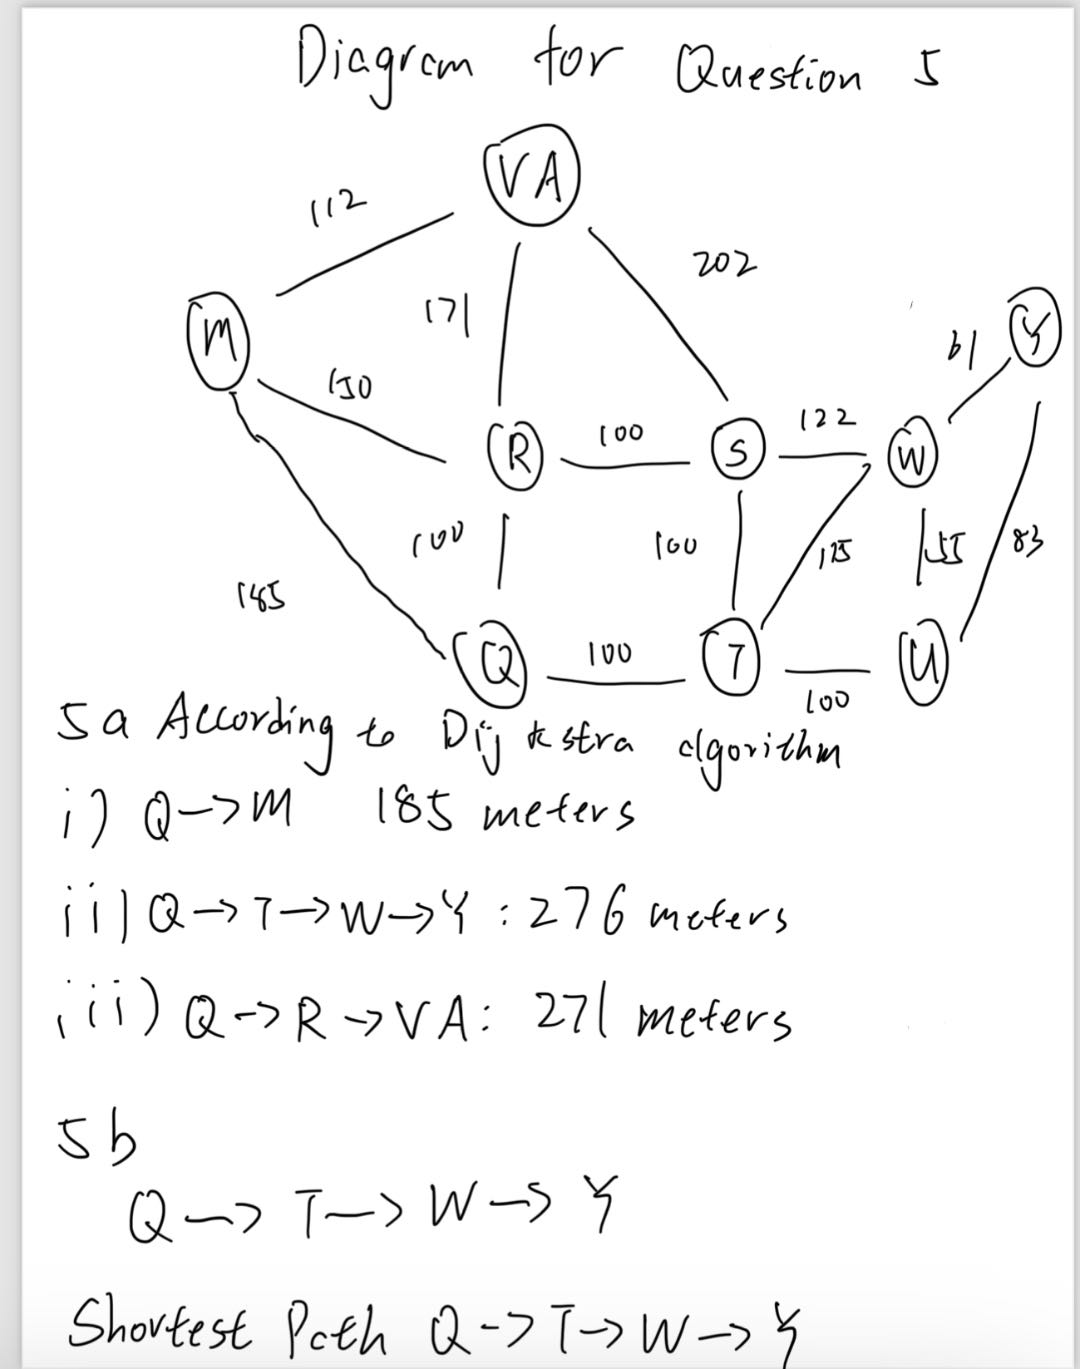 Diagram for Question 5
VA
112
202
M
171
Y
61
150
R
100
S
122
W
100
100
115
55
83
185
Q
100
T
100
U
5a According to Dijkstra algorithm
i) Q->M 185 meters
ii) Q->T->W->Y : 276 meters
iii) Q->R->VA: 271 meters
5b
Q -> T -> W -> Y
Shortest Path Q->T->W->Y